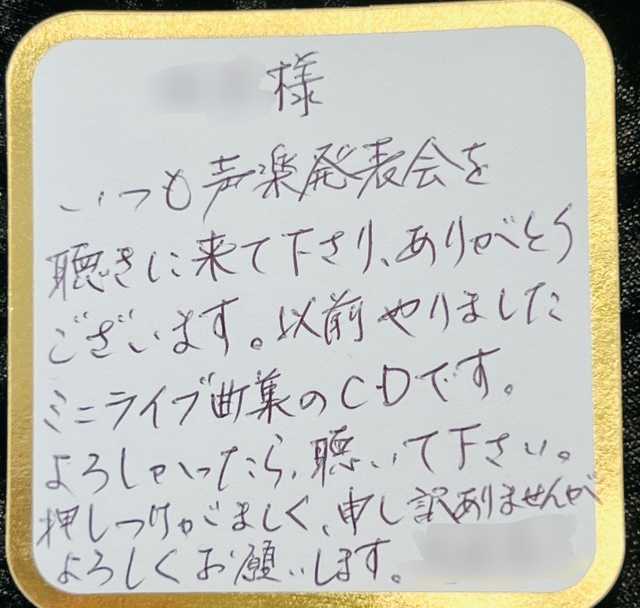 様
いつも声楽発表会を
聴きに来て下さり、ありがとう
ございます。以前やりました
ミニライブ曲集のCDです。
よろしかったら、聴いて下さい。
押しつけがましく、申し訳ありませんが
よろしくお願いします。